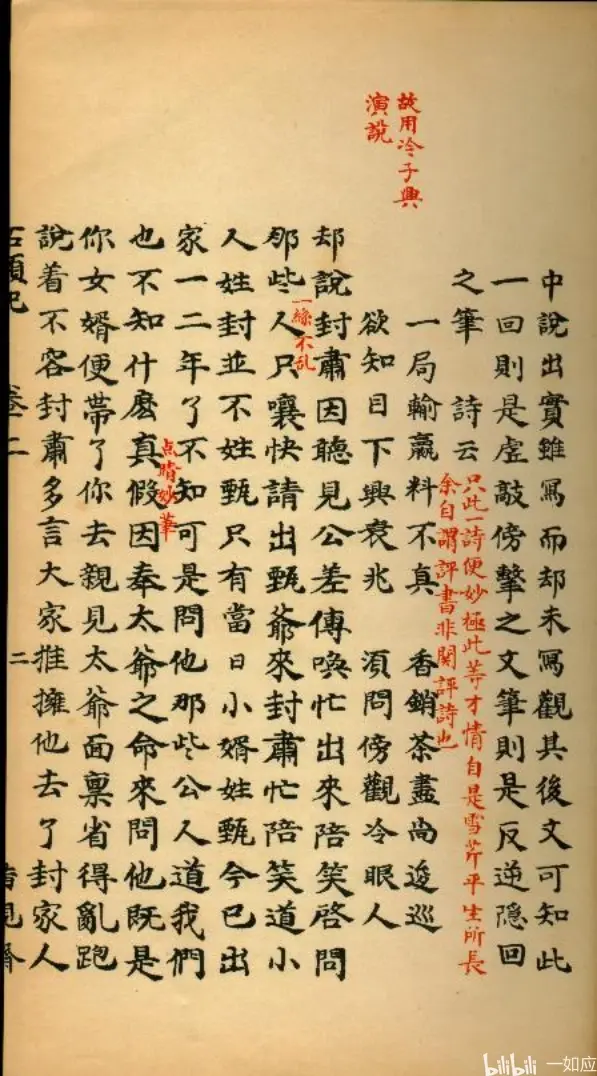 中說出實雖寫而却未寫觀其後文可知此
一回則是虛敲傍擊之文筆則是反逆隱回
之筆 詩云
只此一詩便妙極此等才情自是雪芹平生所長
余自謂評書非関評詩也
一局輸贏料不真 香銷茶盡尚逡巡
故用冷子興
演說
欲知目下興衰兆 須問傍觀冷眼人
却說封肅因聽見公差傳喚忙出來陪笑啓問
一絲不乱
那些人只嚷快請出甄爺來封肅忙陪笑道小
人姓封並不姓甄只有當日小婿姓甄今已出
家一二年了不知可是問他那些公人道我們
点睛妙筆
也不知什麽真假因奉太爺之命來問他既是
你女婿便帶了你去親見太爺面禀省得亂跑
說着不容封肅多言大家推擁他去了封家人
石頭記 卷二 二
bilibili 一如应